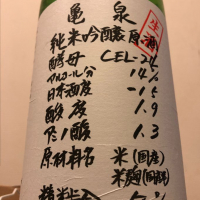 亀泉
生酒
純米吟醸原酒
酵母 CEL-24
アルコール分 14%
日本酒度 -15
酸度 1.9
アミノ酸 1.3
原材料名 米(国産)
米麹(国産米)
精米歩合